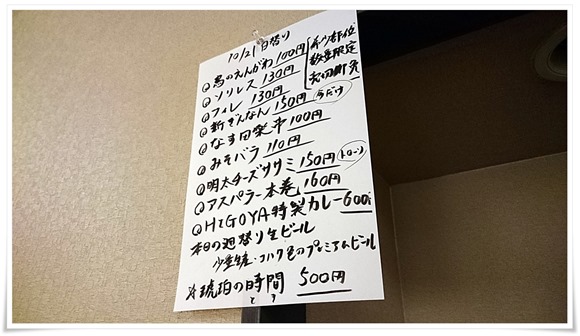 10/21 日替り
鳥のえんがわ 100円
ソリレス 130円
フィレ 130円
希少部位
数量限定
売切御免
新ぎんなん 150円 今だけ
なす田楽串 100円
みそバラ 110円
明太チーズササミ 150円 トローリ
アスパラ一本巻 160円
HIGOYA特製カレー 600
本日の週替り生ビール
少量生産・コハク色のプレミアムビール
琥珀の時間 500円